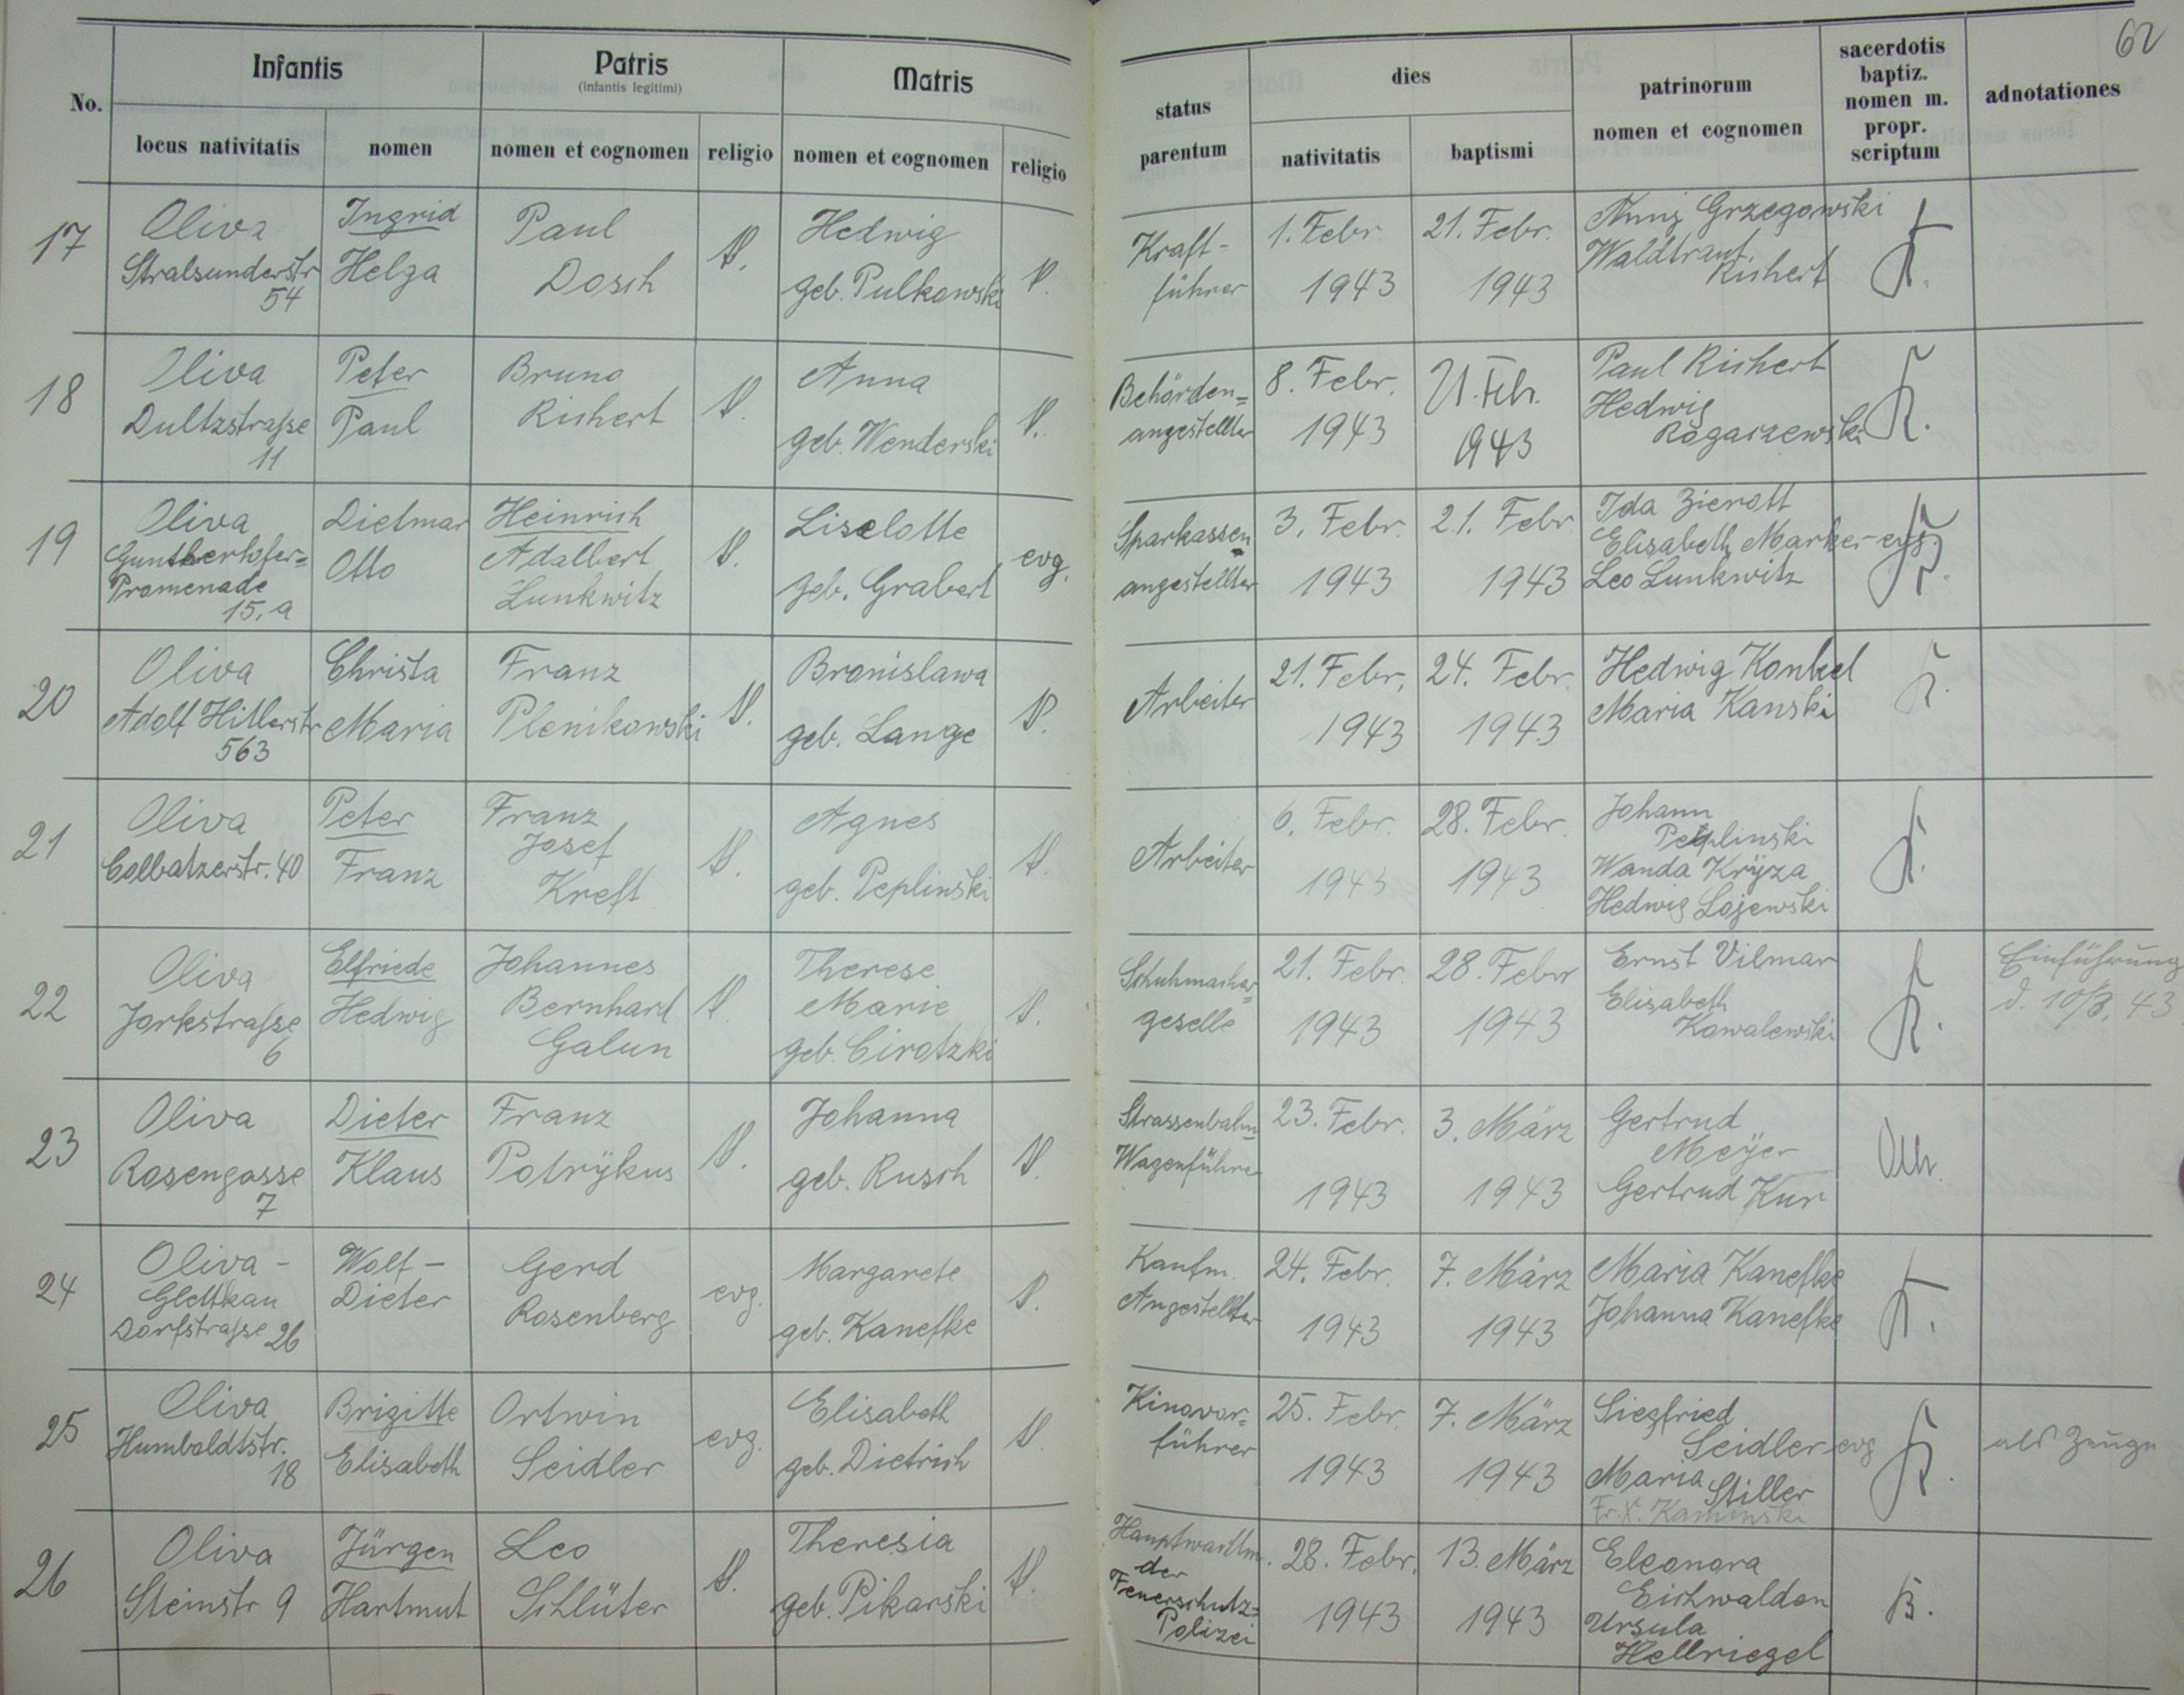 62
No.
Infantis
Patris
(infantis legitimi)
Matris
status
parentum
dies
patrinorum
nomen et cognomen
sacerdotis
baptiz.
nomen m.
propr.
scriptum
adnotationes
locus nativitatis
nomen
nomen et cognomen
religio
nomen et cognomen
religio
nativitatis
baptismi
17
Oliva
Stralsunderstr
54
Ingrid
Helga
Paul
Dosch
Hedwig
geb. Pulkowski
Kraft-
führer
1. Febr.
1943
21. Febr.
1943
Grzegowski
Waldtraut
Richert
18
Oliva
Dultzstraße
11
Peter
Paul
Bruno
Richert
Anna
geb. Wenderski
Behörden=
angestellter
8. Febr.
1943
21. Feb.
1943
Paul Richert
Hedwig
Rogaszewski
19
Oliva
Promenade
15.a
Dietmar
Otto
Heinrich
Adalbert
Lunkwitz
Liselotte
geb. Grabert
evg.
Sparkassen
angestellter
3. Febr.
1943
21. Febr
1943
Ida Zierott
Elisabeth Marker evg.
Leo Lunkwitz
20
Oliva
Adolf Hitlerstr
563
Christa
Maria
Franz
Plenikowski
Bronislawa
geb. Lange
Arbeiter
21. Febr.
1943
24. Febr.
1943
Hedwig Konkel
Maria Kanski
21
Oliva
Colbatzerstr. 40
Peter
Franz
Franz
Josef
Kreft
Agnes
geb. Peplinski
Arbeiter
6. Febr.
1943
28. Febr.
1943
Johann
Peplinski
Wanda Krÿza
Hedwig Lojewski
22
Oliva
Jorkstraße
6
Elfriede
Hedwig
Johannes
Bernhard
Galun
Therese
Marie
geb. Cirotzki
Schuhmacher=
geselle
21. Febr.
1943
28. Febr
1943
Ernst Vilmar
Elisabeth
Kowalewski
Einführung
d. 10/3. 43
23
Oliva
Rosengasse
7
Dieter
Klaus
Franz
Potrÿkus
Johanna
geb. Rusch
Strassenbahn
Wagenführer
23. Febr.
1943
3. März
1943
Gertrud
Meÿer
Gertrud Kur
24
Oliva -
Glettkau
Dorfstraße 26
Wolf -
Dieter
Gerd
Rosenberg
evg.
Margarete
geb. Kanefke
Kaufm.
Angestellter
24. Febr.
1943
7. März
1943
Maria Kanefke
Johanna Kanefke
25
Oliva
Humboldtstr.
18
Brigitte
Elisabeth
Ortwin
Seidler
evg.
Elisabeth
geb. Dietrich
Kinovor=
führer
25. Febr.
1943
7. März
1943
Siegfried
Seidler evg
Maria Stiller
Fr. X. Kaminski
als Zeuge
26
Oliva
Steinstr 9
Jürgen
Hartmut
Leo
Schlüter
Theresia
geb. Pikarski
Hauptwachtm.
der
Feuerschutz=
Polizei
28. Febr.
1943
13. März
1943
Eleonora
Eichwalden
Ursula
Hellriegel